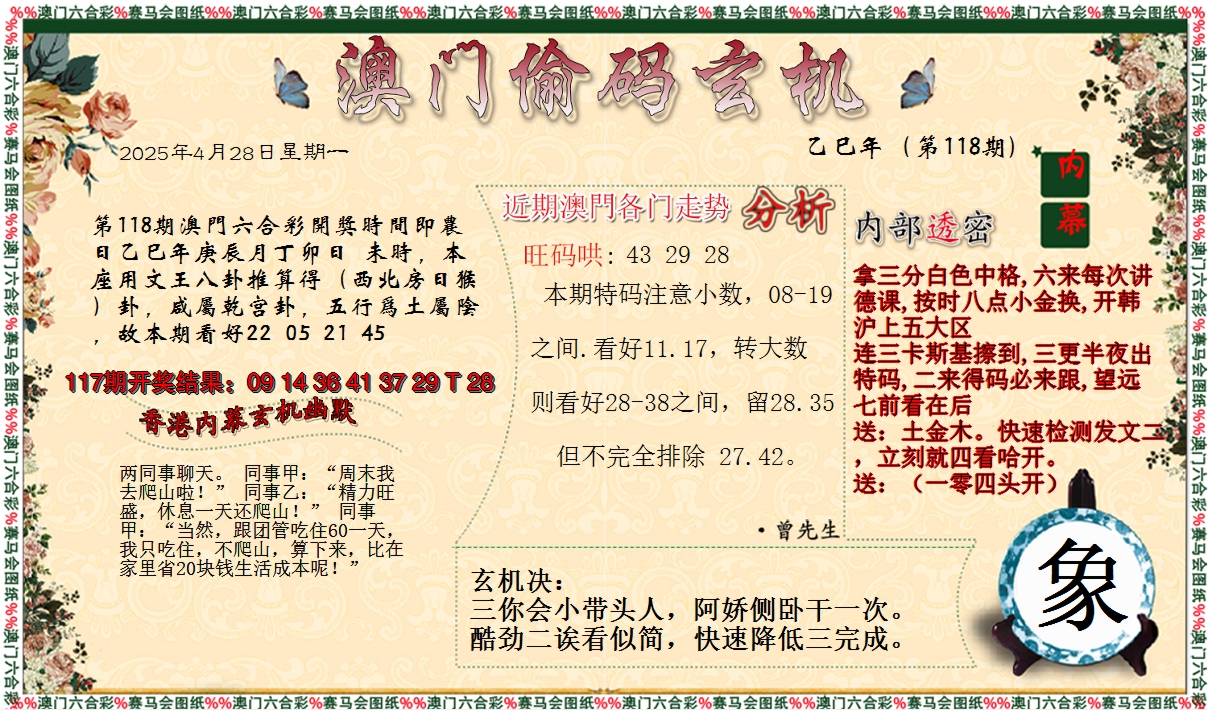 %%澳门六合彩%赛马会图纸%%澳门六合彩%赛马会图纸%%澳门六合彩%赛马会图纸%%澳门六合彩%赛马会图纸%%澳门六合彩%赛马会图纸%%澳门六合彩%赛马会图纸%%
澳门偷码玄机
2025年4月28日星期一
乙巳年（第118期）
内幕
第118期澳門六合彩開獎時間即農
日乙巳年庚辰月丁卯日 未時，本
座用文王八卦推算得（西北房日猴
）卦，咸屬乾宫卦，五行爲土屬陰
，故本期看好22 05 21 45
117期开奖结果：09 14 36 41 37 29 T 28
香港内幕玄机幽默
两同事聊天。 同事甲：“周末我
去爬山啦！” 同事乙：“精力旺
盛，休息一天还爬山！” 同事
甲：“当然，跟团管吃住60一天，
我只吃住，不爬山，算下来，比在
家里省20块钱生活成本呢！”
近期澳門各门走势 分析
旺码哄: 43 29 28
本期特码注意小数，08-19
之间.看好11.17，转大数
则看好28-38之间，留28.35
但不完全排除 27.42。
·曾先生
内部透密
拿三分白色中格,六来每次讲
德课,按时八点小金换,开韩
沪上五大区
连三卡斯基擦到,三更半夜出
特码,二来得码必来跟,望远
七前看在后
送：土金木。快速检测发文二
，立刻就四看哈开。
送：（一零四头开）
玄机决：
三你会小带头人，阿娇侧卧干一次。
酷劲二诶看似简，快速降低三完成。
象
%%澳门六合彩%赛马会图纸%%澳门六合彩%赛马会图纸%%澳门六合彩%赛马会图纸%%澳门六合彩%赛马会图纸%%澳门六合彩%赛马会图纸%%澳门六合彩%赛马会图纸%%